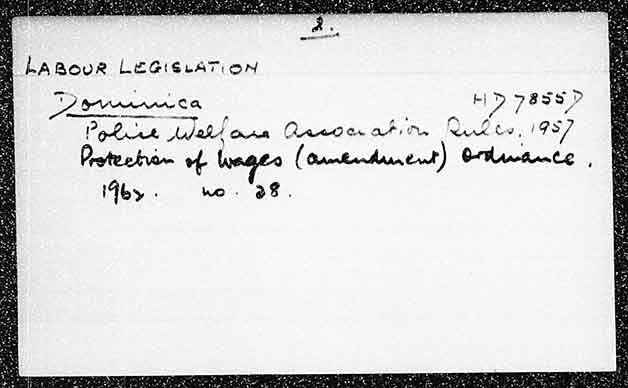 2.
LABOUR LEGISLATION
Dominica HD 7855D
Police Welfare Association Rules, 1957
Protection of Wages (amendment) ordinance.
1962. no. 28.